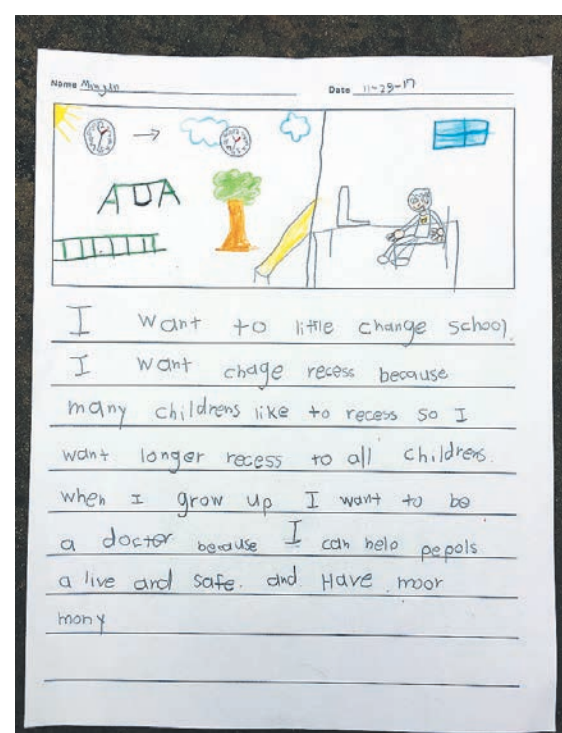 Name Minyan Date 11-29-17
I want to little change school.
I want chage recess because
many childrens like to recess so I
want longer recess to all childrens.
when I grow up I want to be
a doctor because I can help pepols
a live and safe. and Have moor
mony